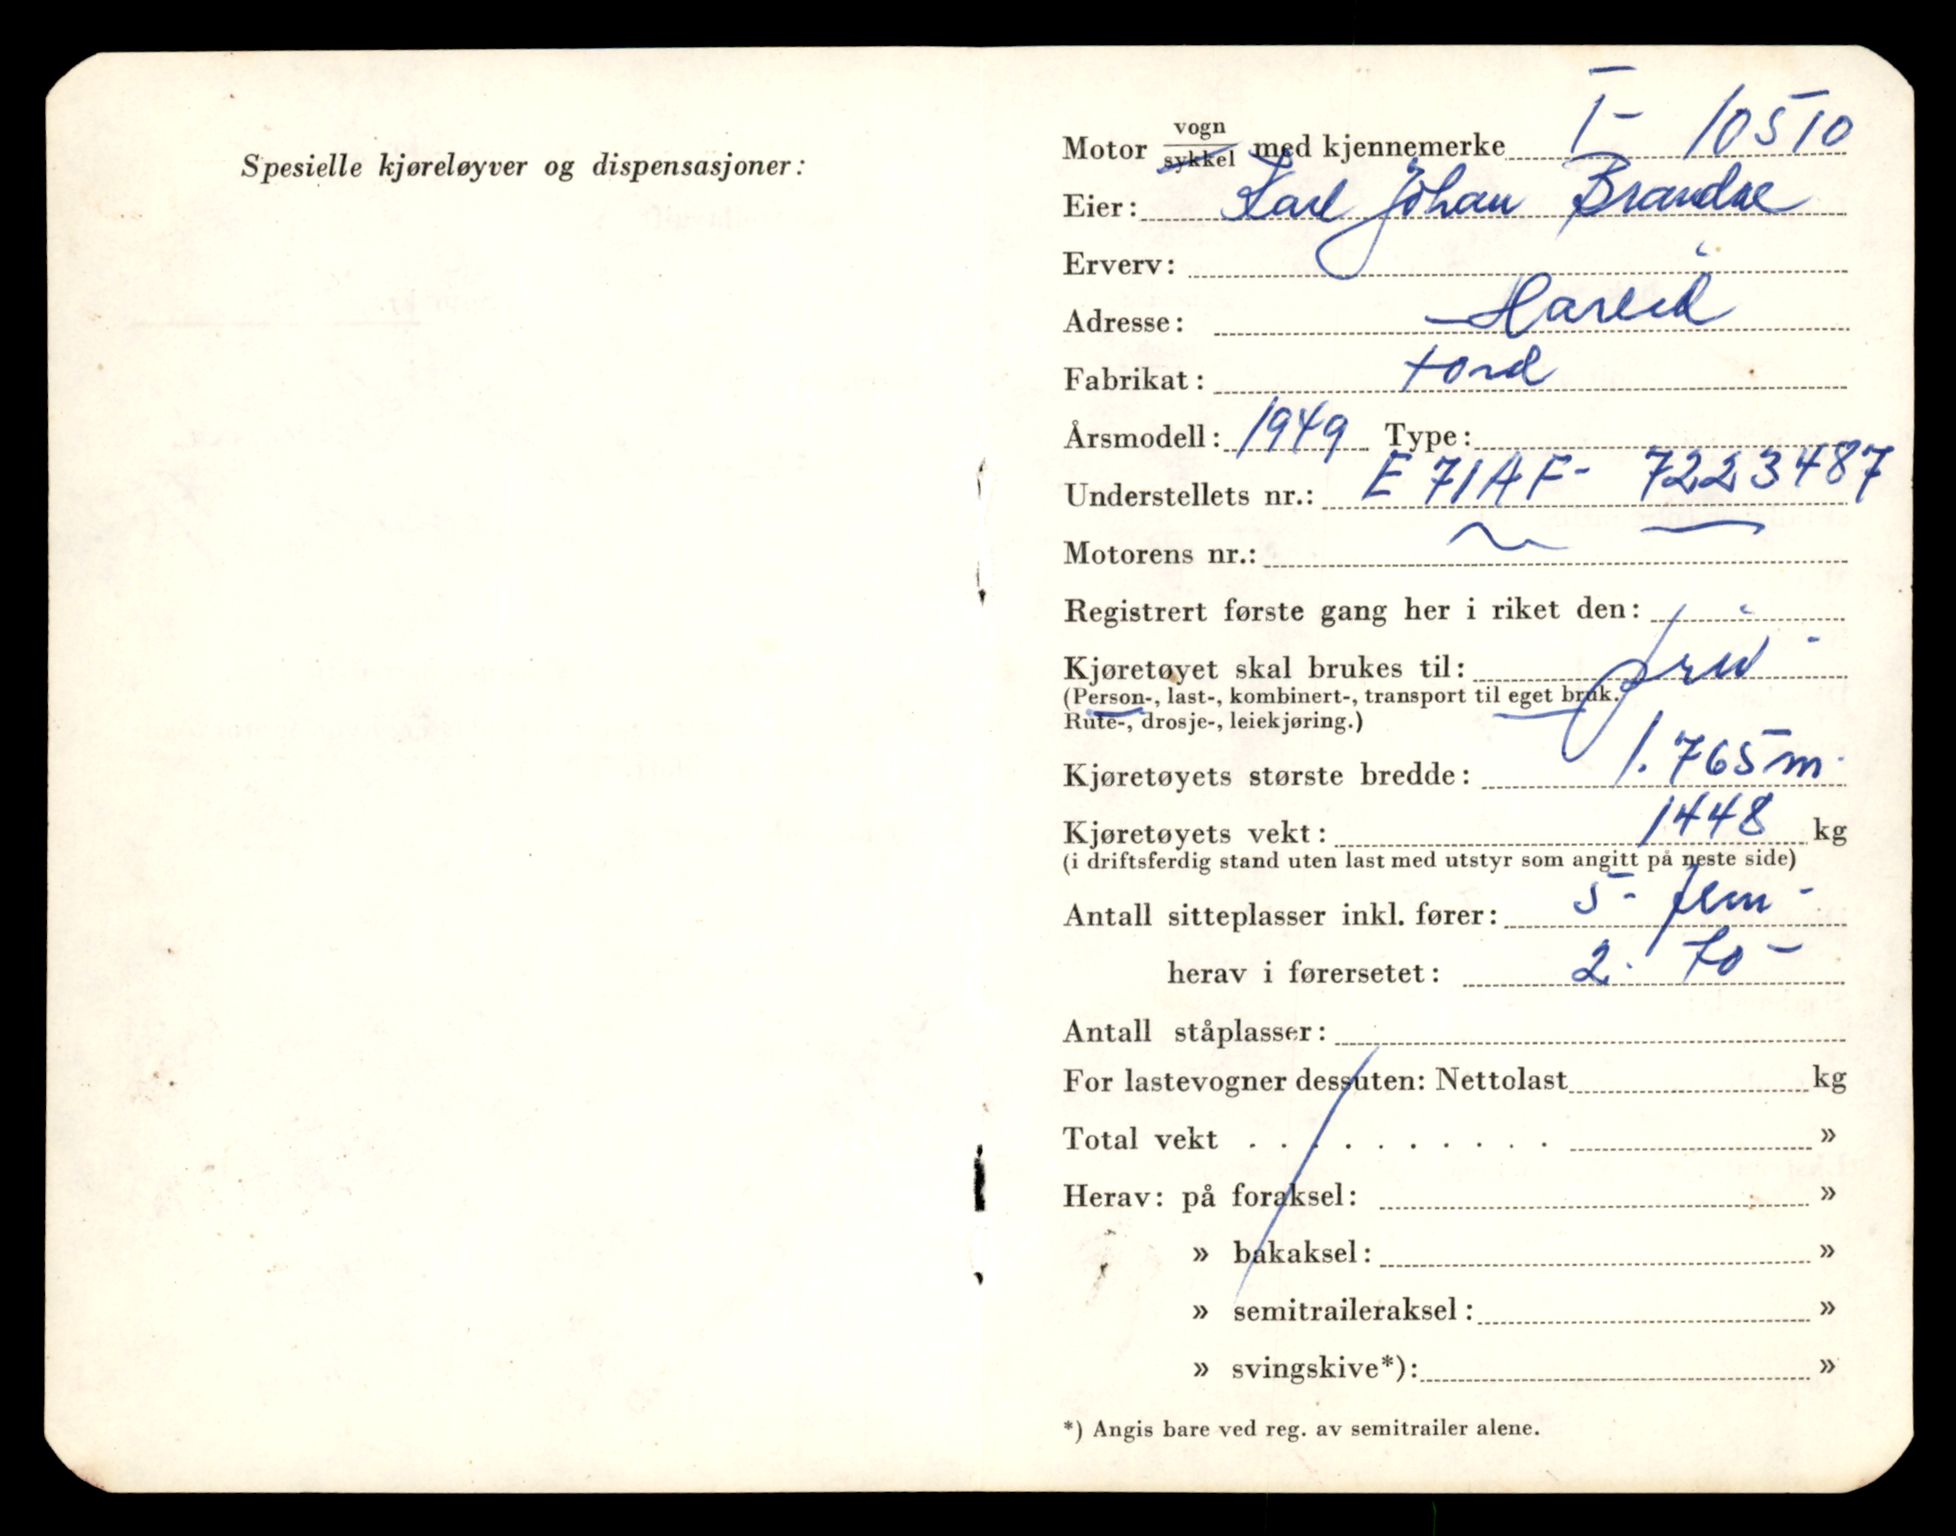 Spesielle kjøreløyver og dispensasjoner:
Motor vogn/sykkel med kjennemerke T- 10510
Eier: Karl Johan Brandal
Erverv:
Adresse: Hareid
Fabrikat: Ford
Årsmodell: 1949 Type:
Understellets nr.: E 71AF- 7223487
Motorens nr.:
Registrert første gang her i riket den:
Kjøretøyet skal brukes til: priv
(Person-, last-, kombinert-, transport til eget bruk.
Rute-, drosje-, leiekjøring.)
Kjøretøyets største bredde: 1.765 m
Kjøretøyets vekt: 1448 kg
(i driftsferdig stand uten last med utstyr som angitt på neste side)
Antall sitteplasser inkl. fører: 5- fem-
herav i førersetet: 2. to-
Antall ståplasser:
For lastevogner dessuten: Nettolast kg
Total vekt . . . . . . . . . . »
Herav: på foraksel: »
» bakaksel: »
» semitraileraksel: »
» svingskive*): »
*) Angis bare ved reg. av semitrailer alene.